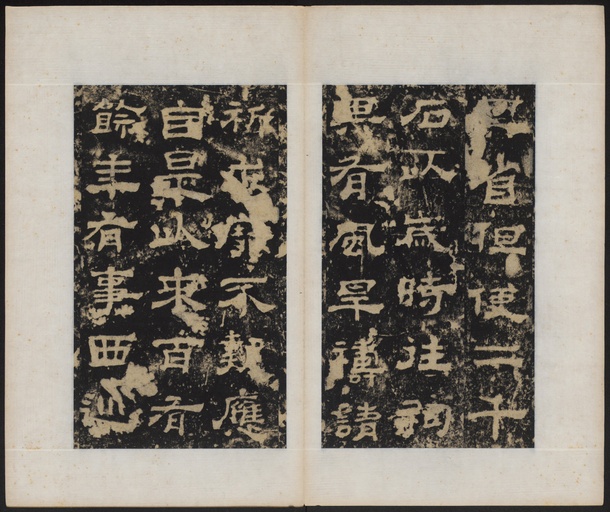 其省但使二千
石以歲時往祠
其有風旱禱請
祈求靡不報應
自是以來百有
餘年有事西巡